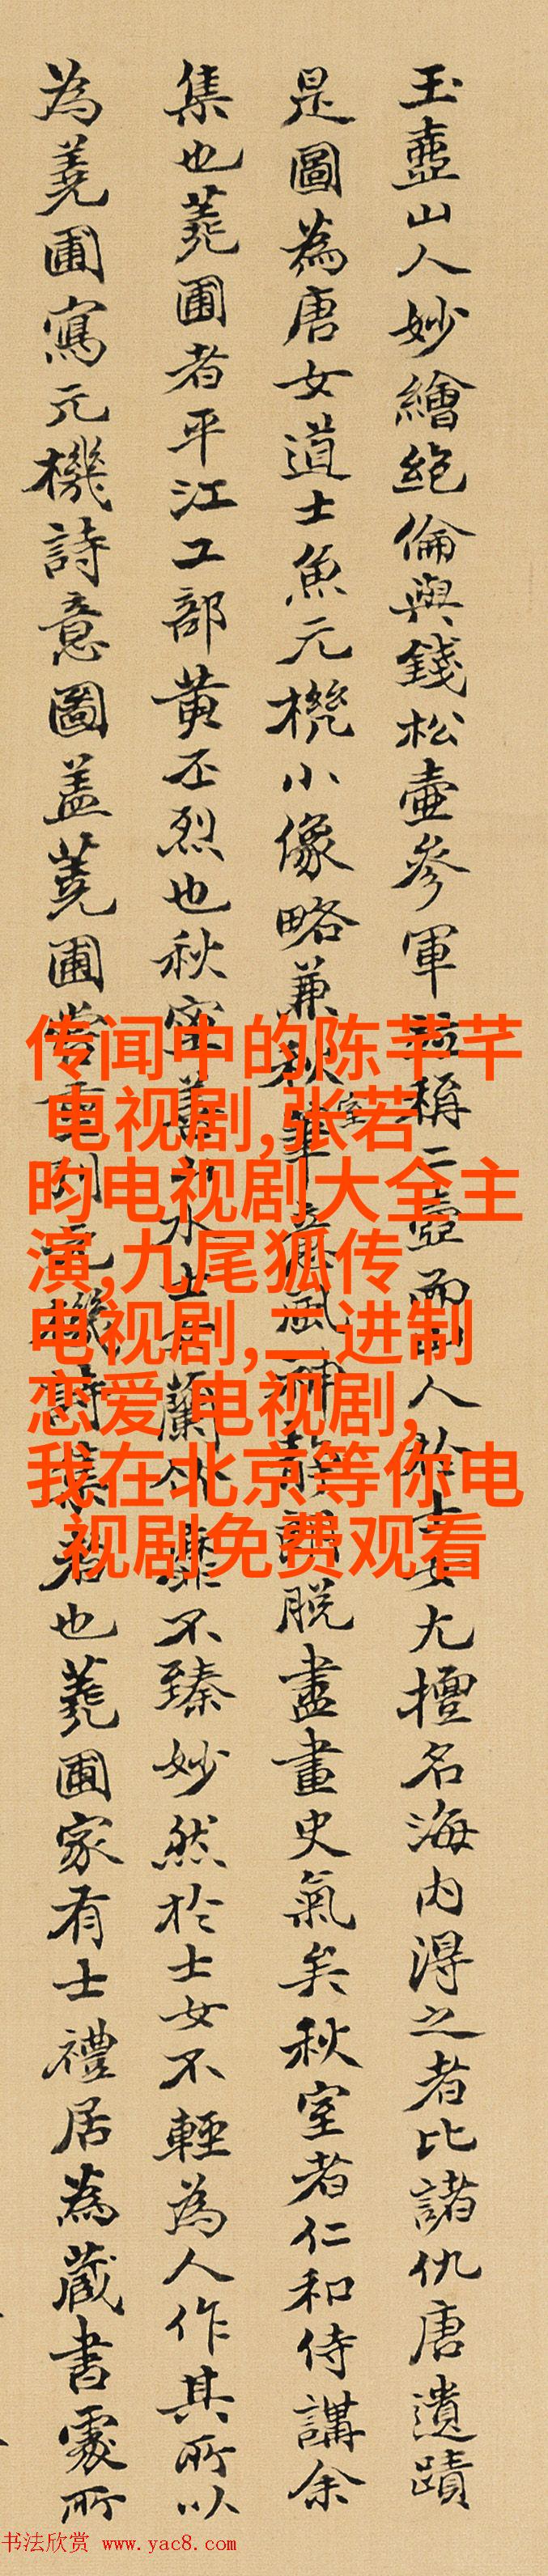 玉壺山人妙繪絶倫與錢松壺參軍並稱二壺而山人於士女尤擅名海内淂之者比諸仇唐遺蹟
是圖為唐女道士魚元機小像略兼秋室筆意風神静脱盡畫史氣矣秋室者仁和侍講余
集也蕘圃者平江工部黄丕烈也秋室善山水士女蘭竹靡不臻妙然於士女不輕為人作其所以
為蕘圃寫元機詩意圖盖蕘圃嘗重刊元機詩集者也蕘圃家有士禮居為蔵書處所
传闻中的陈芊芊
电视剧,张若
昀电视剧大全主
演,九尾狐传
电视剧,二进制
恋爱 电视剧,
我在北京等你电
视剧免费观看
书法欣赏 www.yac8.com